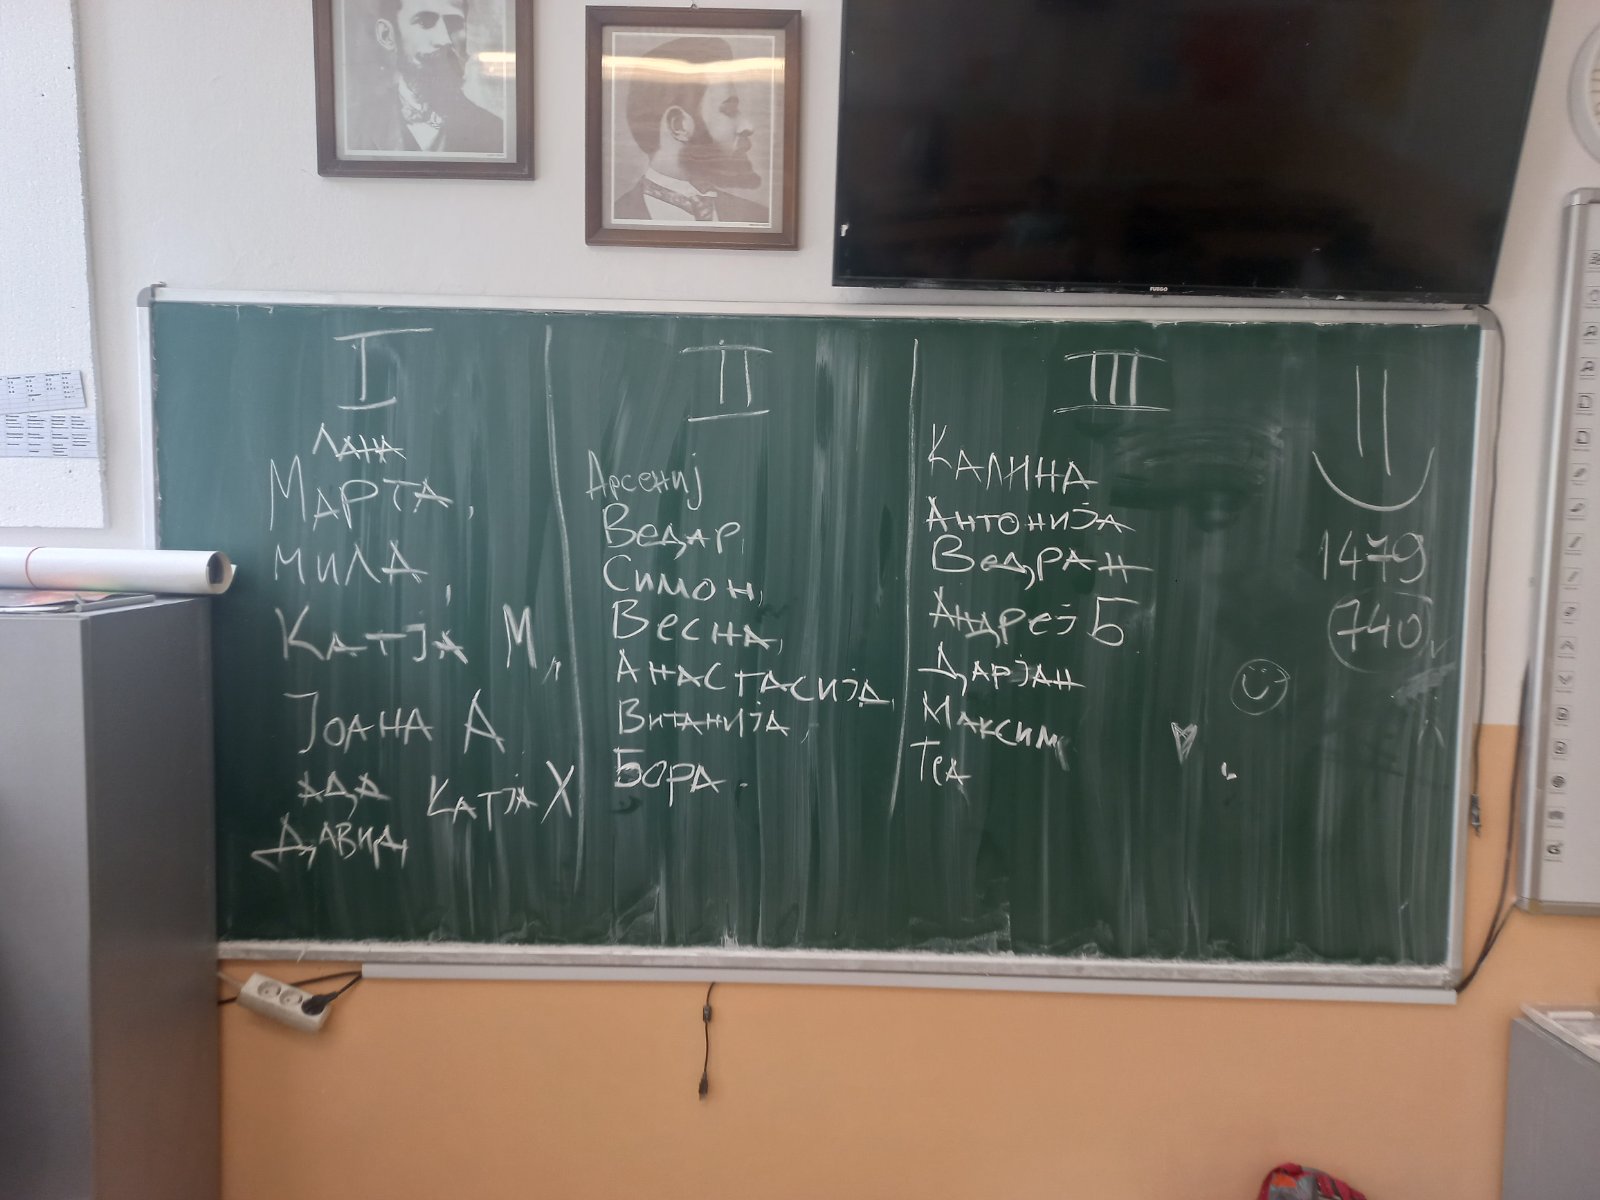 FUEGO
I
Лана
Марта,
Мила,
Катја М,
Јоана А
Ада Катја Х
Давид
II
Арсениј
Ведар,
Симон,
Весна,
Анастасија,
Витанија,
Бора.
III
Калина
Антонија
Ведран
Андреј Б
Дарјан
Максим
Теа
1479
740